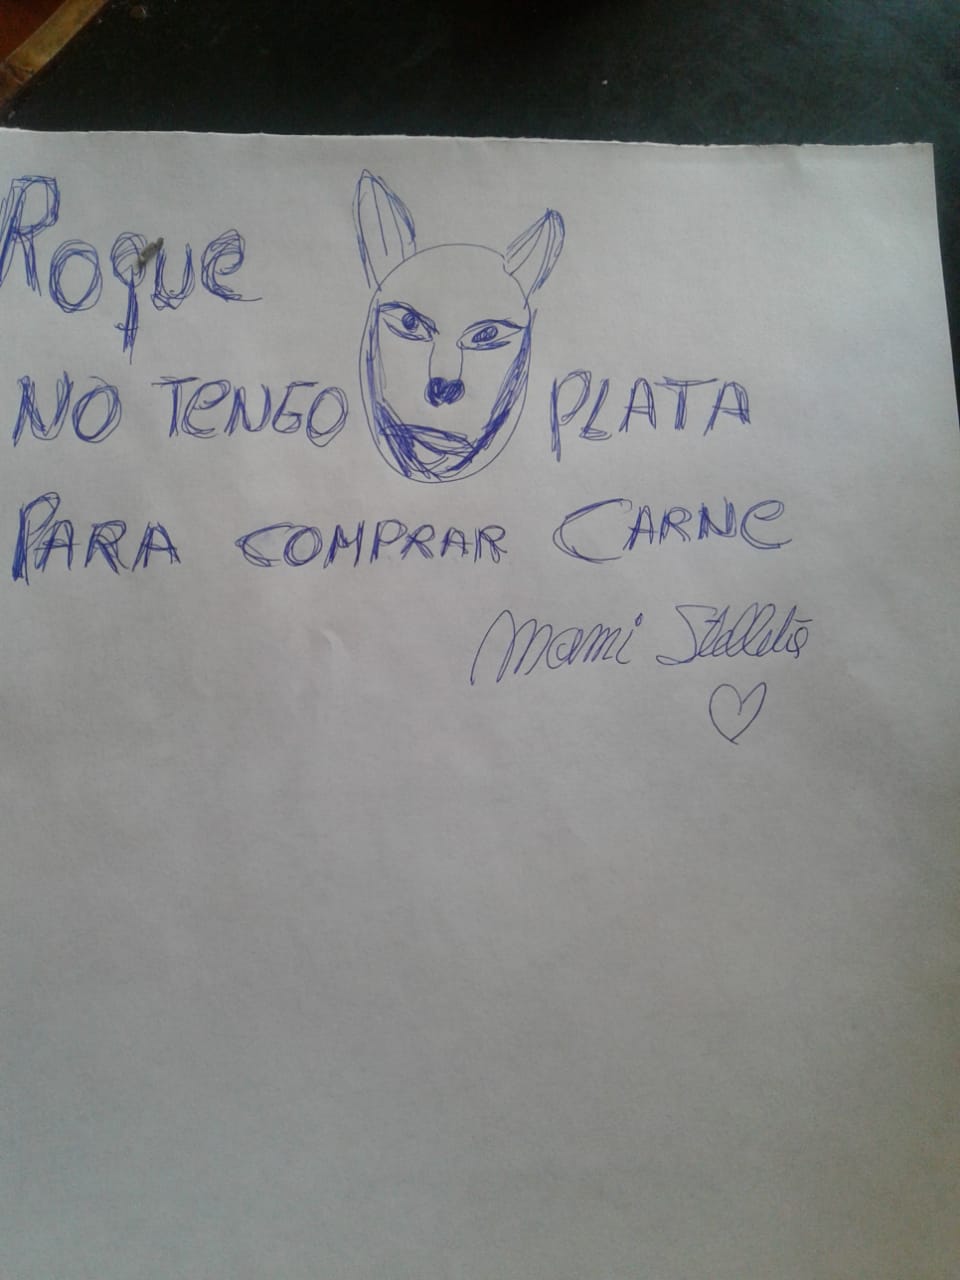 Roque
NO TENGO PLATA
PARA COMPRAR CARNE
Mami